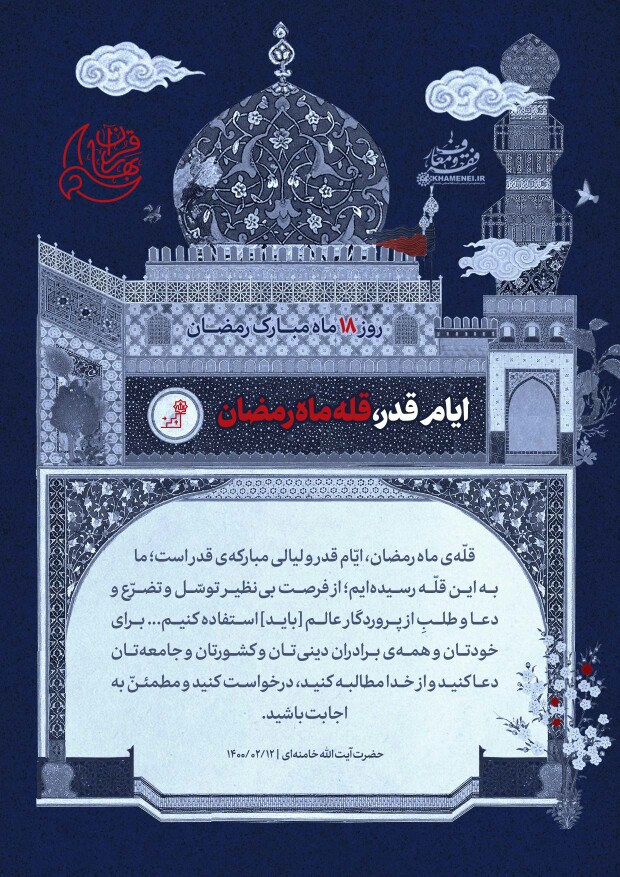 بهار قرآن
فقه و معارف
KHAMENEI.IR
روز ۱۸ ماه مبارک رمضان
ایام قدر، قله ماه رمضان
قلّه‌ی ماه رمضان، ایّام قدر و لیالی مبارکه‌ی قدر است؛ ما
به این قلّه رسیده‌ایم؛ از فرصت بی‌نظیر توسّل و تضرّع و
دعا و طلبِ از پروردگار عالم [باید] استفاده کنیم... برای
خودتان و همه‌ی برادران دینی‌تان و کشورتان و جامعه‌تان
دعا کنید و از خدا مطالبه کنید، درخواست کنید و مطمئنّ به
اجابت باشید.
حضرت آیت الله خامنه‌ای | ۱۴۰۰/۰۲/۱۲